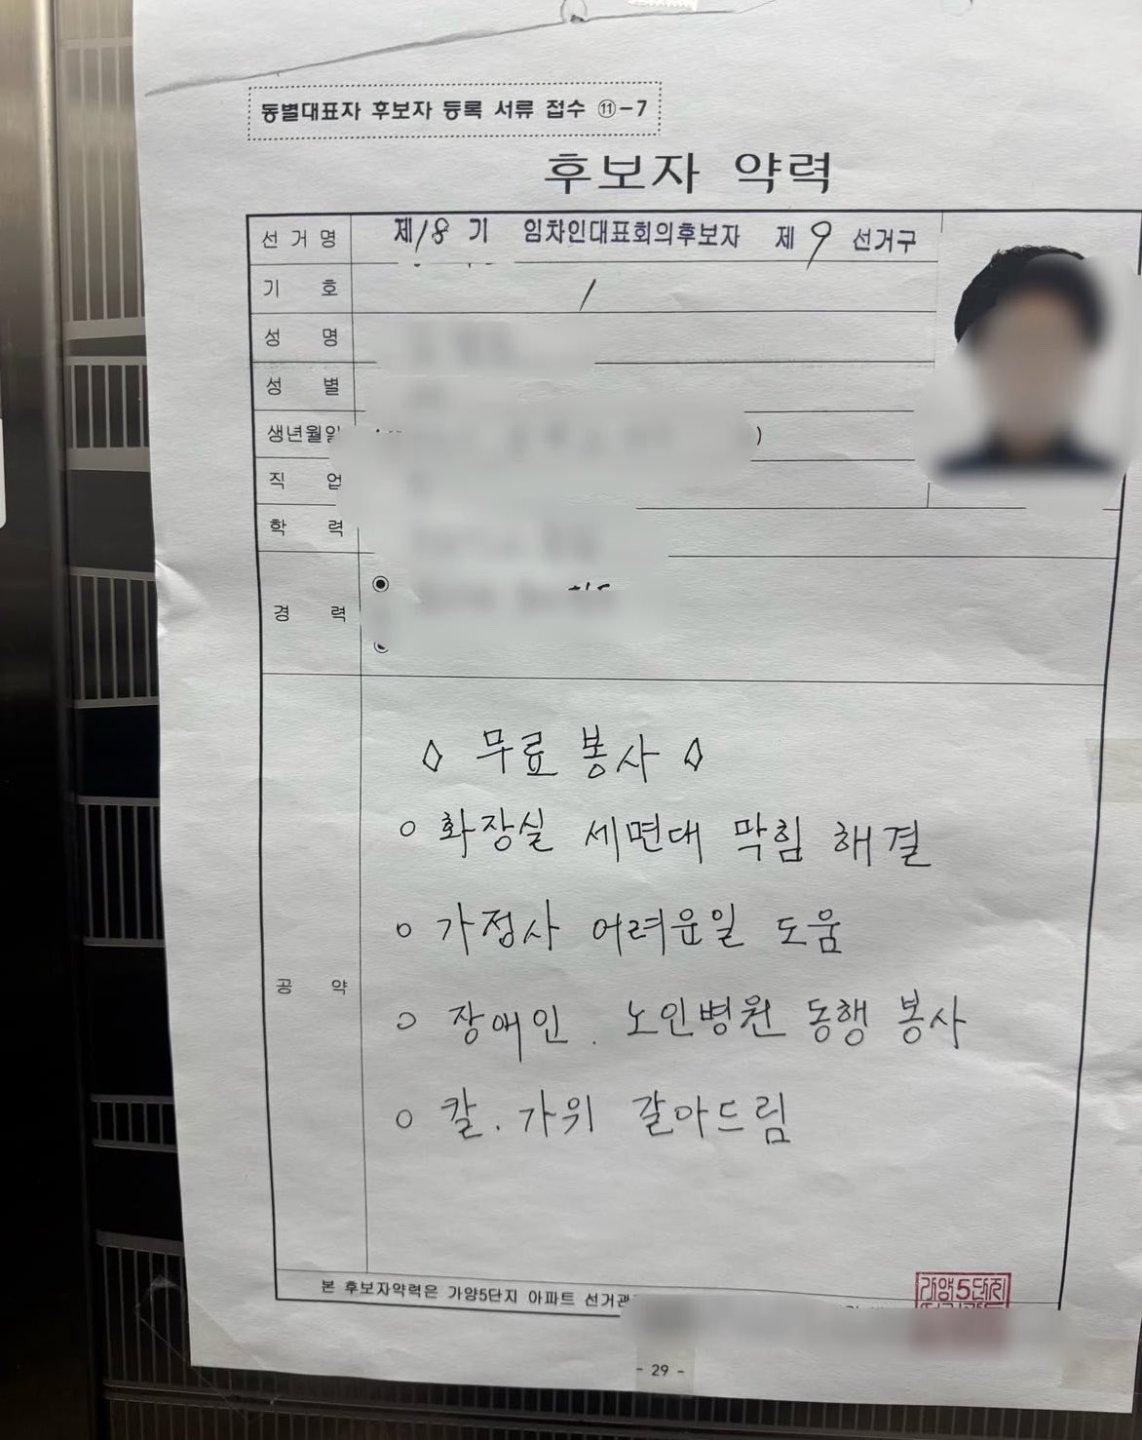 동별대표자 후보자 등록 서류 접수 ⑪-7
후보자 약력
선거명 제18기 임차인대표회의후보자 제9 선거구
기 호 1
성 명
성 별
생년월일
직 업
학 력
경 력
공 약
◇ 무료 봉사 ◇
○ 화장실 세면대 막힘 해결
○ 가정사 어려운일 도움
○ 장애인. 노인병원 동행 봉사
○ 칼. 가위 갈아드림
본 후보자약력은 가양5단지 아파트
가양5단지
- 29 -